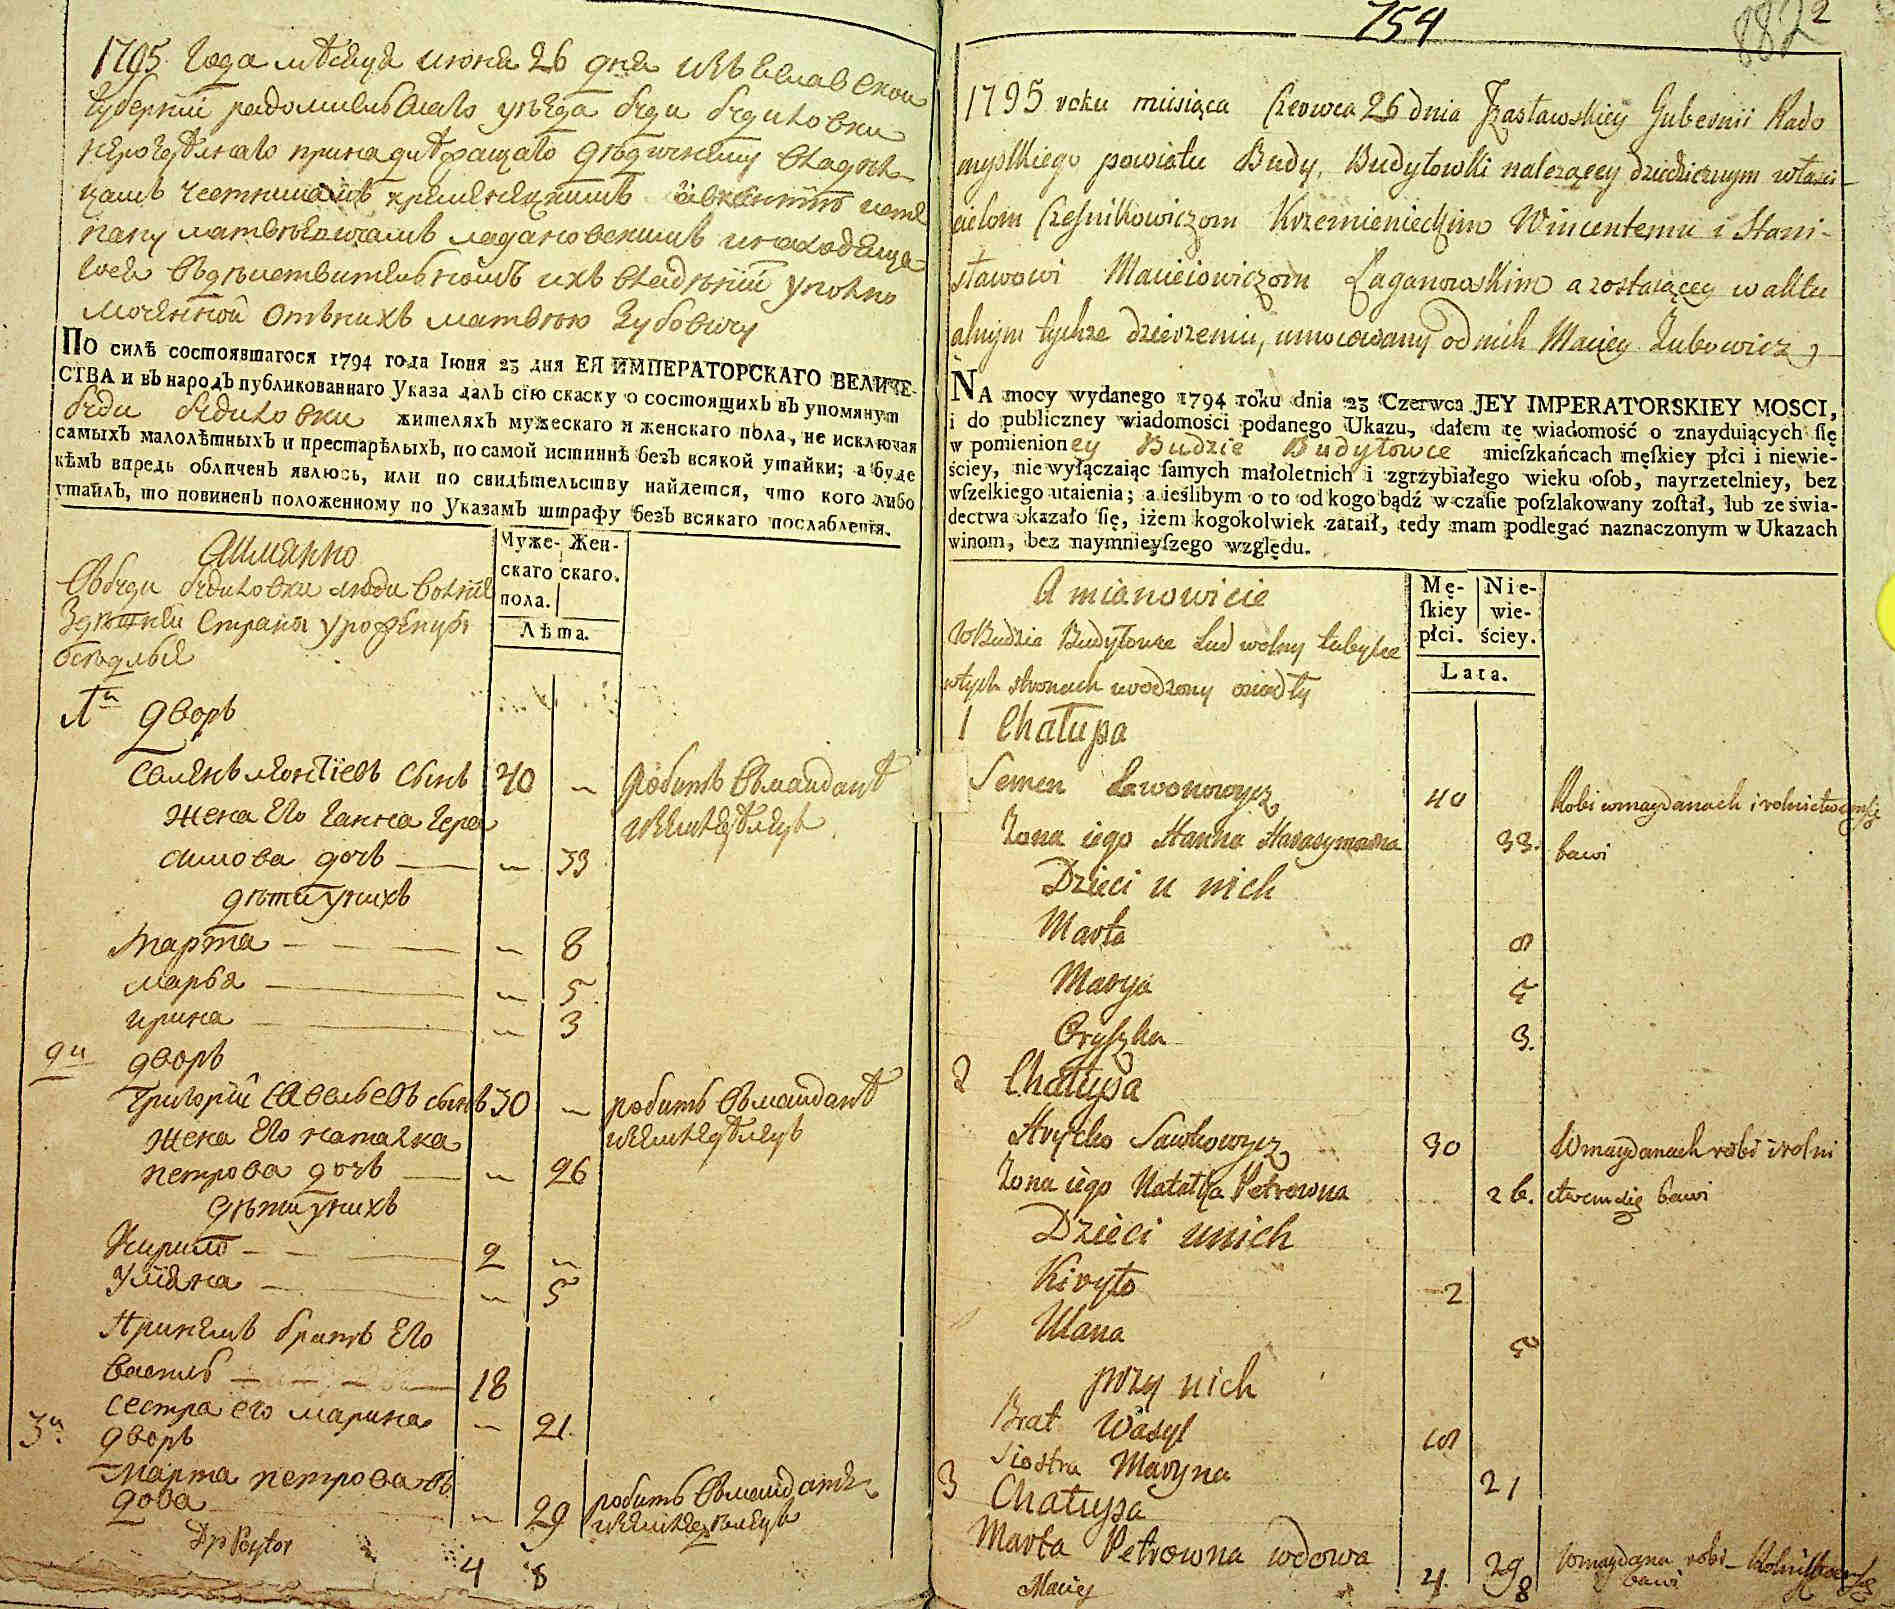 1795 года мѣсяца июня 26 дня Изъяславской
губернии радомисльскаго уѣзда буди будиловки
владѣл-
цамъ чесникамъ кременецкимъ
матвѣевичамъ лагановскимъ
ихъ владѣнии уполно
моченной отъ нихъ матвѣю зубовичу
ПО силѣ состоявшагося 1794 года Іюня 23 дня ЕЯ ИМПЕРАТОРСКАГО ВЕЛИЧЕ-
СТВА и въ народъ публикованнаго Указа далъ сїю скаску о состоящихъ въ упомянут
буди будиловки жителяхъ мужескаго и женскаго пола, не исключая
самыхъ малолѣтныхъ и престарѣлыхъ, по самой истиннѣ безъ всякой утайки; а буде
кѣмъ впредь обличенъ явлюсь, или по свидѣтельству найдется, что кого либо
утаилъ, то повиненъ положенному по Указамъ штрафу безъ всякаго послабленія.
Аимянно
Муже- Жен-
скаго скаго.
пола.
Лѣта.
Вбуди будиловки люди волніе
здѣшней страни урожену
1й дворъ
Семенъ леонтїевъ сынъ 40 робитъ вмайданѣ
жена его ганна гера
симова дочь 33
дѣти унихъ
Марта 8
марья 5
ирина 3
2й дворъ
Григорїй савельевъ сынъ 30 робитъ вмайданѣ
жена его наталка
петрова дочь 26
дѣти унихъ
Кирило 2
Уляна 5
Принемъ братъ его
василь 18
сестра его марина 21
3й дворъ
Марта петрова въ
дова 29 робитъ вмайданѣ
4 8
754
882 2
1795 roku miesiąca Czerwca 26 dnia Izasławskiey Gubernii Rado
myslkiego powiatu Budy, Budyłowki należącey dziedzicznym właści-
cielom Czesnikowiczom Krzemienieckim Wincentemu i Stani-
sławowi Macieiowiczom Łaganowskim a zostaiącey w aktu
alnym tychże dzierzeniu, umocowany od nich Maciey Zubowicz
NA mocy wydanego 1794 roku dnia 23 Czerwca JEY IMPERATORSKIEY MOSCI,
i do publiczney wiadomości podanego Ukazu, dałem tę wiadomość o znayduiących się
w pomienioney Budzie Budyłowce mieſzkańcach męſkiey płci i niewie-
ściey, nie wyłączaiąc ſamych małoletnich i zgrzybiałego wieku oſob, nayrzetelniey, bez
wſzelkiego utaienia; a ieślibym o to od kogo bądź w czaſie poſzlakowany zoſtał, lub ze świa-
dectwa okazało się, iżem kogokolwiek zataił, tedy mam podlegać naznaczonym w Ukazach
winom, bez naymnieyſzego względu.
A mianowicie
Mę- Nie-
ſkiey wie-
płci. ściey.
Lata.
WBudzie Budyłowce Lud wolny tubylce
wtych stronach urodzony osiadły
1 Chałupa
Semen Lewonowycz 40 Robi wmaydanach i rolnictwem się
Żona iego Hanna Harasymowna 33. bawi
Dzieci u nich
Marta 8
Marya 5
Oryszka 3.
2 Chałupa
Hrycko Sawkowycz 30 Wmaydanach robi i rolni
Żona iego Natałka Petrowna 26. ctwem się bawi
Dzieci unich
Kiryło 2
Ulana 5
przy nich
Brat Wasyl 18
Siostra Maryna 21
3 Chałupa
Marta Petrowna wdowa 29 Wmaydana robi Rolnictwem się
bawi
Maciey 4. 8